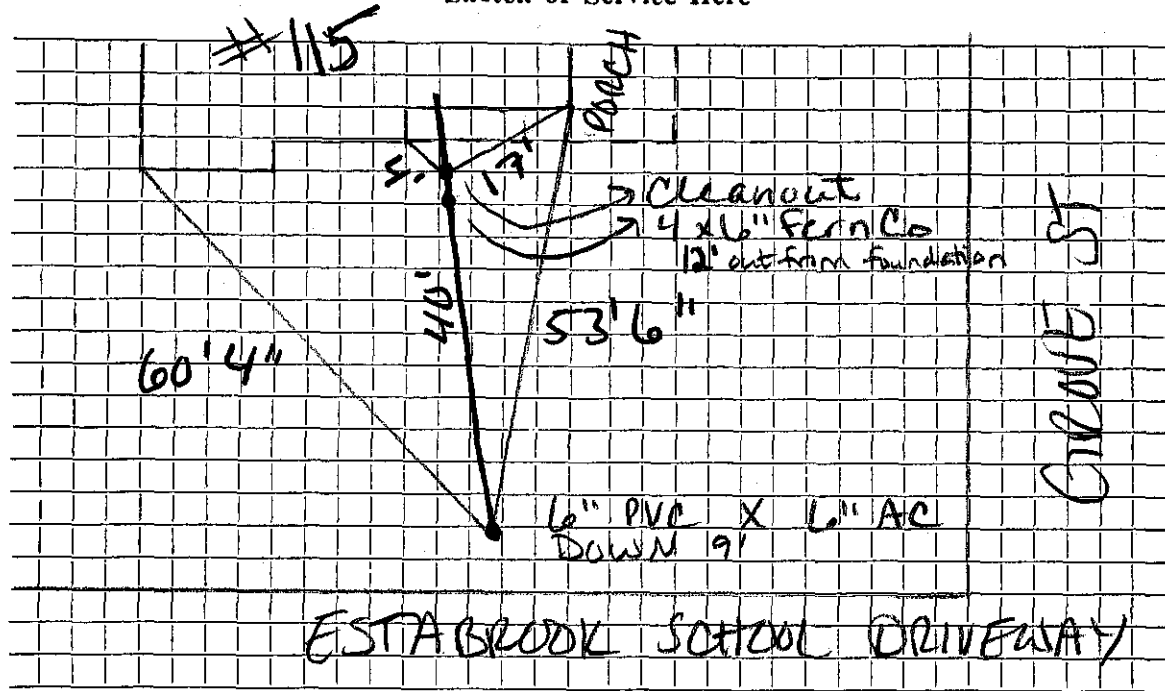 Sketch of Service Here
#115
PORCH
17'
Cleanout
4 x 6" FernCo
12' out from foundation
40'
53' 6"
60' 4"
6" PVC X 6" AC
DOWN 9'
GROVE ST
ESTABROOK SCHOOL DRIVEWAY